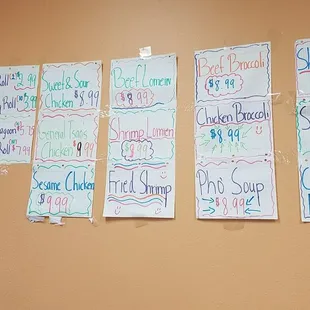 Roll
2.99
Roll
Roll
Sweet & Sour
Chicken $8.99
General Tsao's
Chicken $9.99
Sesame Chicken
$9.99
Beef Lomein
$8.99
Shrimp Lomen
$8.99
Fried Shrimp
Beef Broccoli
$8.99
Chicken Broccoli
$8.99
Phở Soup
$8.99